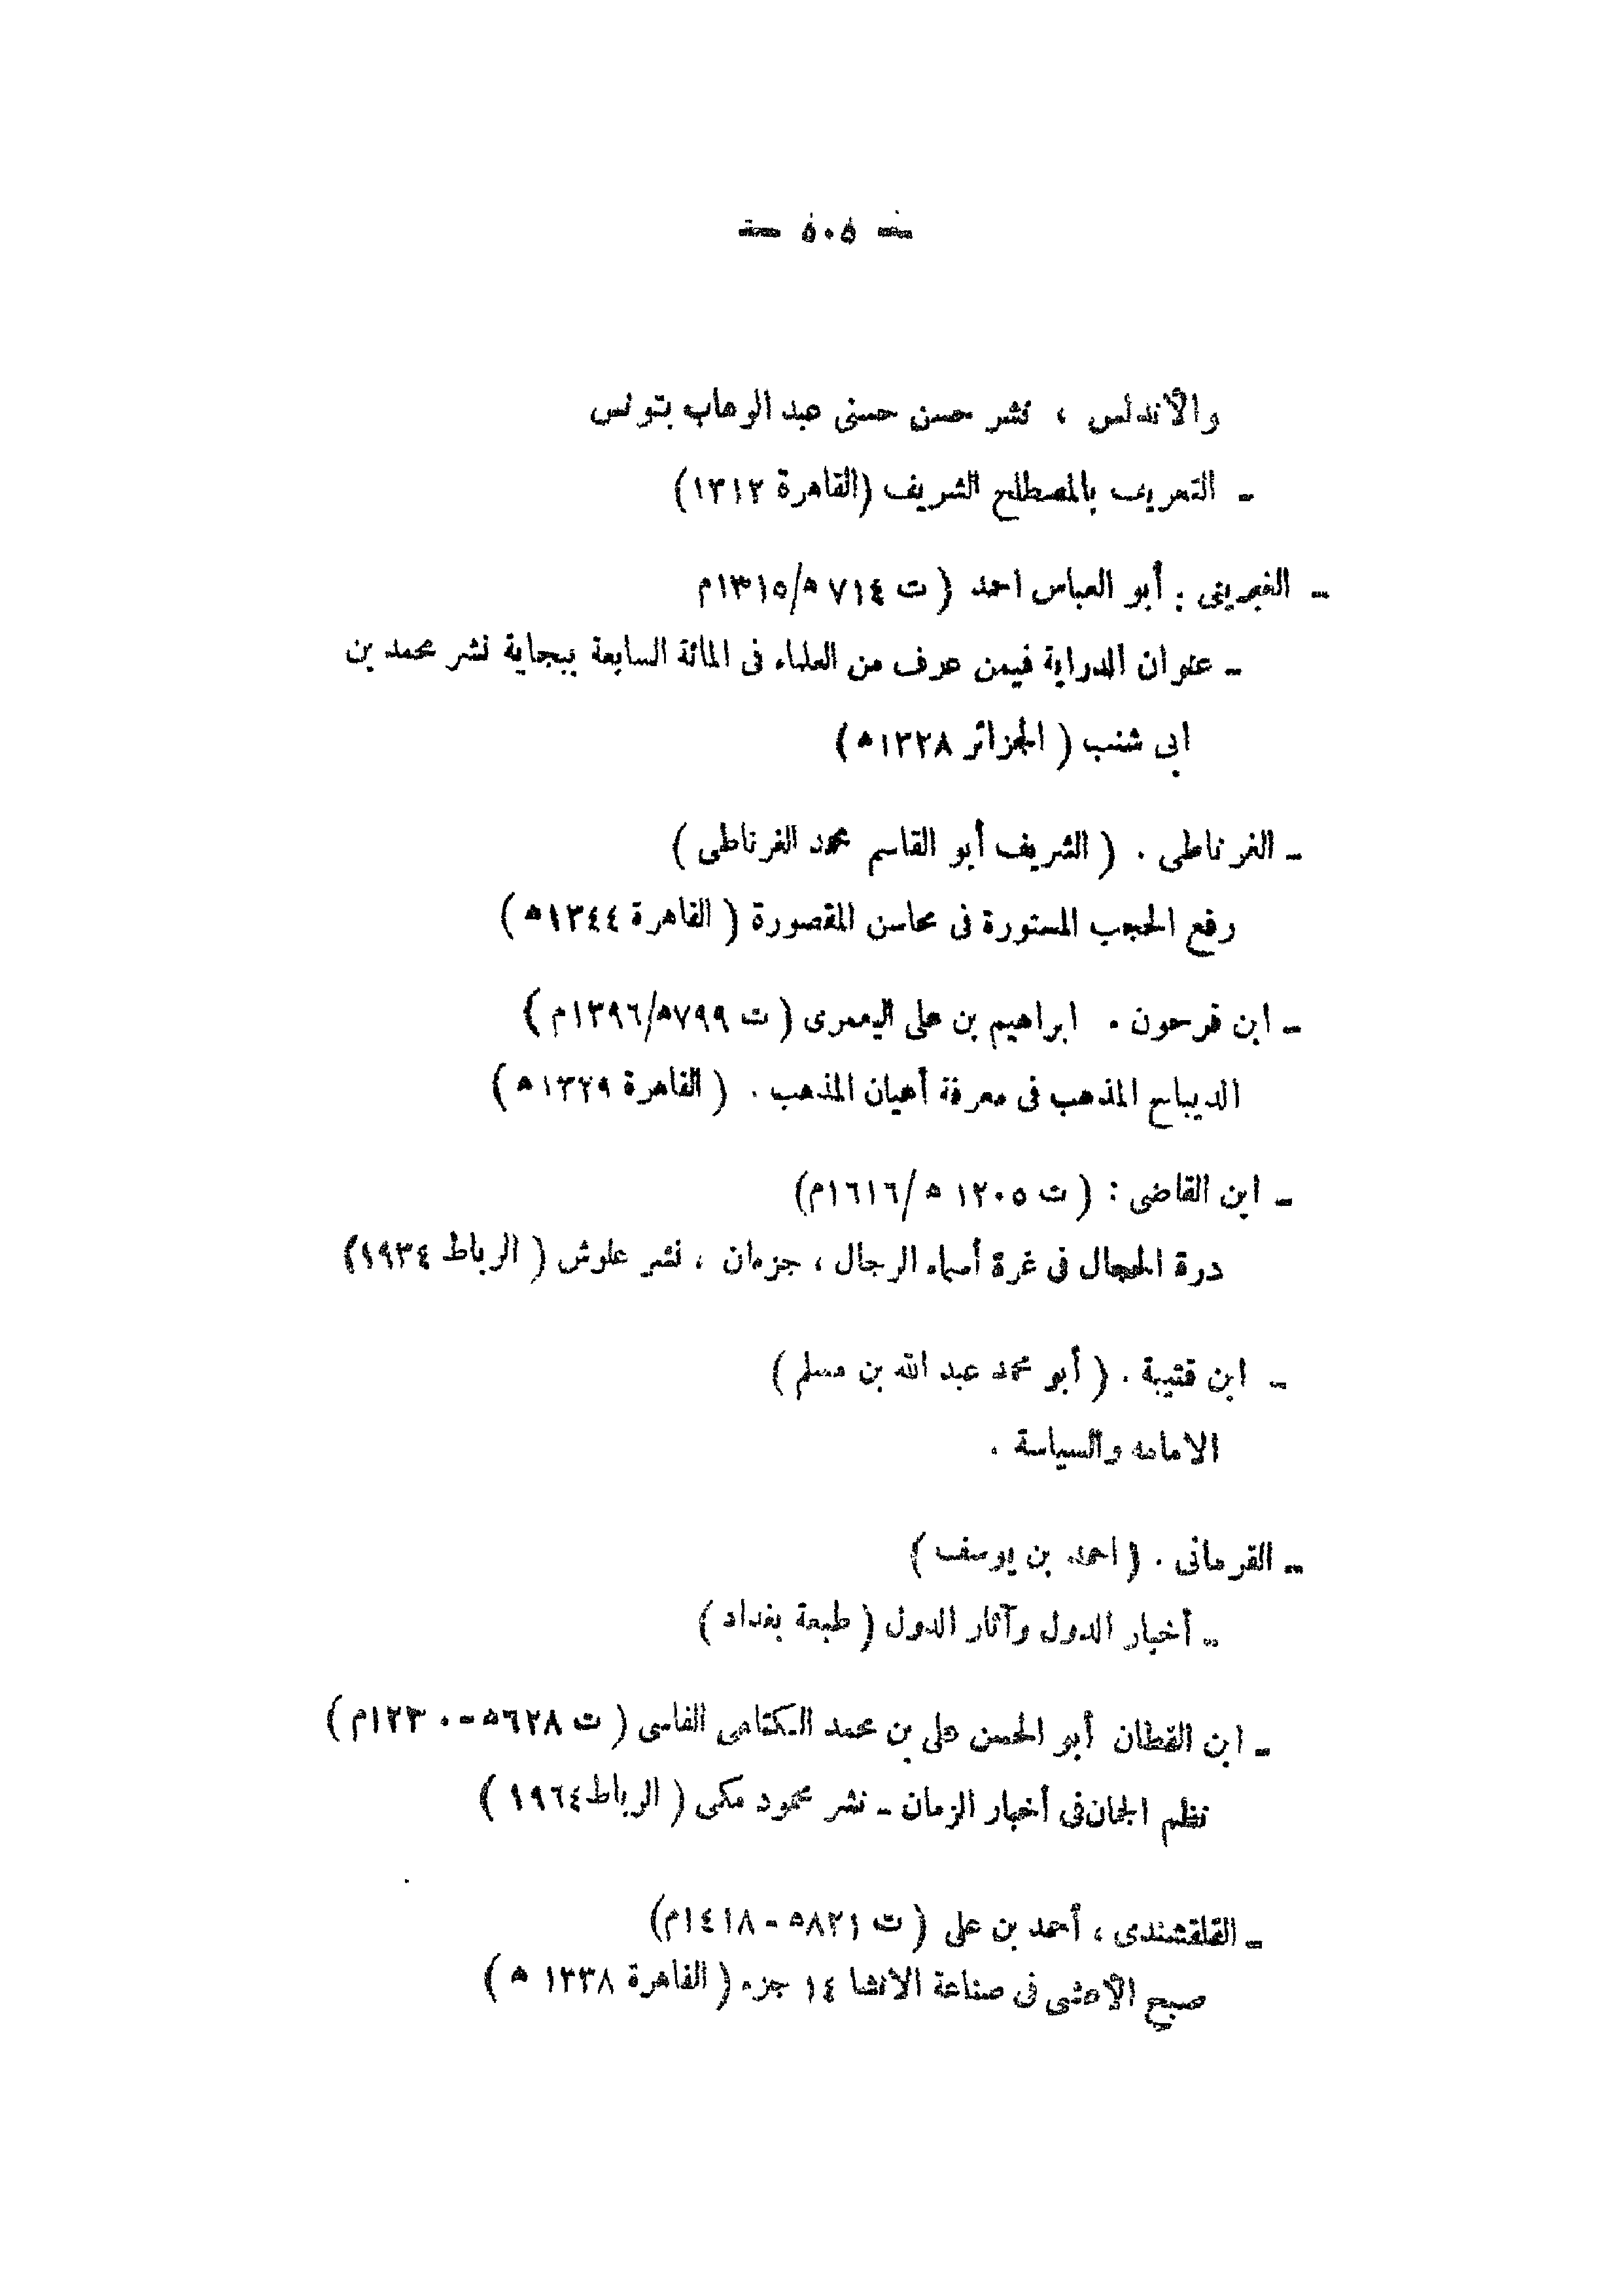 — ٥٠٥ —
والأندلس ، نشر حسن حسنى عبد الوهاب بتونس
- التعريف بالمصطلح الشريف (القاهرة ١٣١٢)
- الغبرينى . أبو العباس احمد ( ت ٧١٤ ه/١٣١٥م
- عنوان الدراية فيمن عرف من العلماء فى المائة السابعة ببجاية نشر محمد بن
ابى شنب ( الجزائر ١٣٢٨ه )
- الغرناطى . ( الشريف أبو القاسم محمد الغرناطى )
رفع الحجب المستورة فى محاسن المقصورة ( القاهرة ١٣٤٤ه )
- ابن فرحون . ابراهيم بن على اليعمرى ( ت ٧٩٩ه/١٣٩٦م )
الديباج المذهب فى معرفة أعيان المذهب . ( القاهرة ١٣٢٩ه )
- ابن القاضى : ( ت ١٢٠٥ ه/١٦١٦م)
درة الحجال فى غرة أسماء الرجال ، جزءان ، نشر علوش ( الرباط ١٩٣٤)
- ابن قتيبة . ( أبو محمد عبد الله بن مسلم )
الامامه والسياسة .
- القرمانى . ( احمد بن يوسف )
- أخبار الدول وآثار الدول ( طبعة بغداد )
- ابن القطان أبو الحسن على بن محمد الكتامى الفاسى ( ت ٦٢٨ه - ١٢٣٠م )
نظم الجمان فى أخبار الزمان - نشر محمود مكى ( الرباط ١٩٦٤ )
- القلقشندى ، أحمد بن على ( ت ٨٢١ه - ١٤١٨م)
صبح الأعشى فى صناعة الانشا ١٤ جزء ( القاهرة ١٣٣٨ ه )